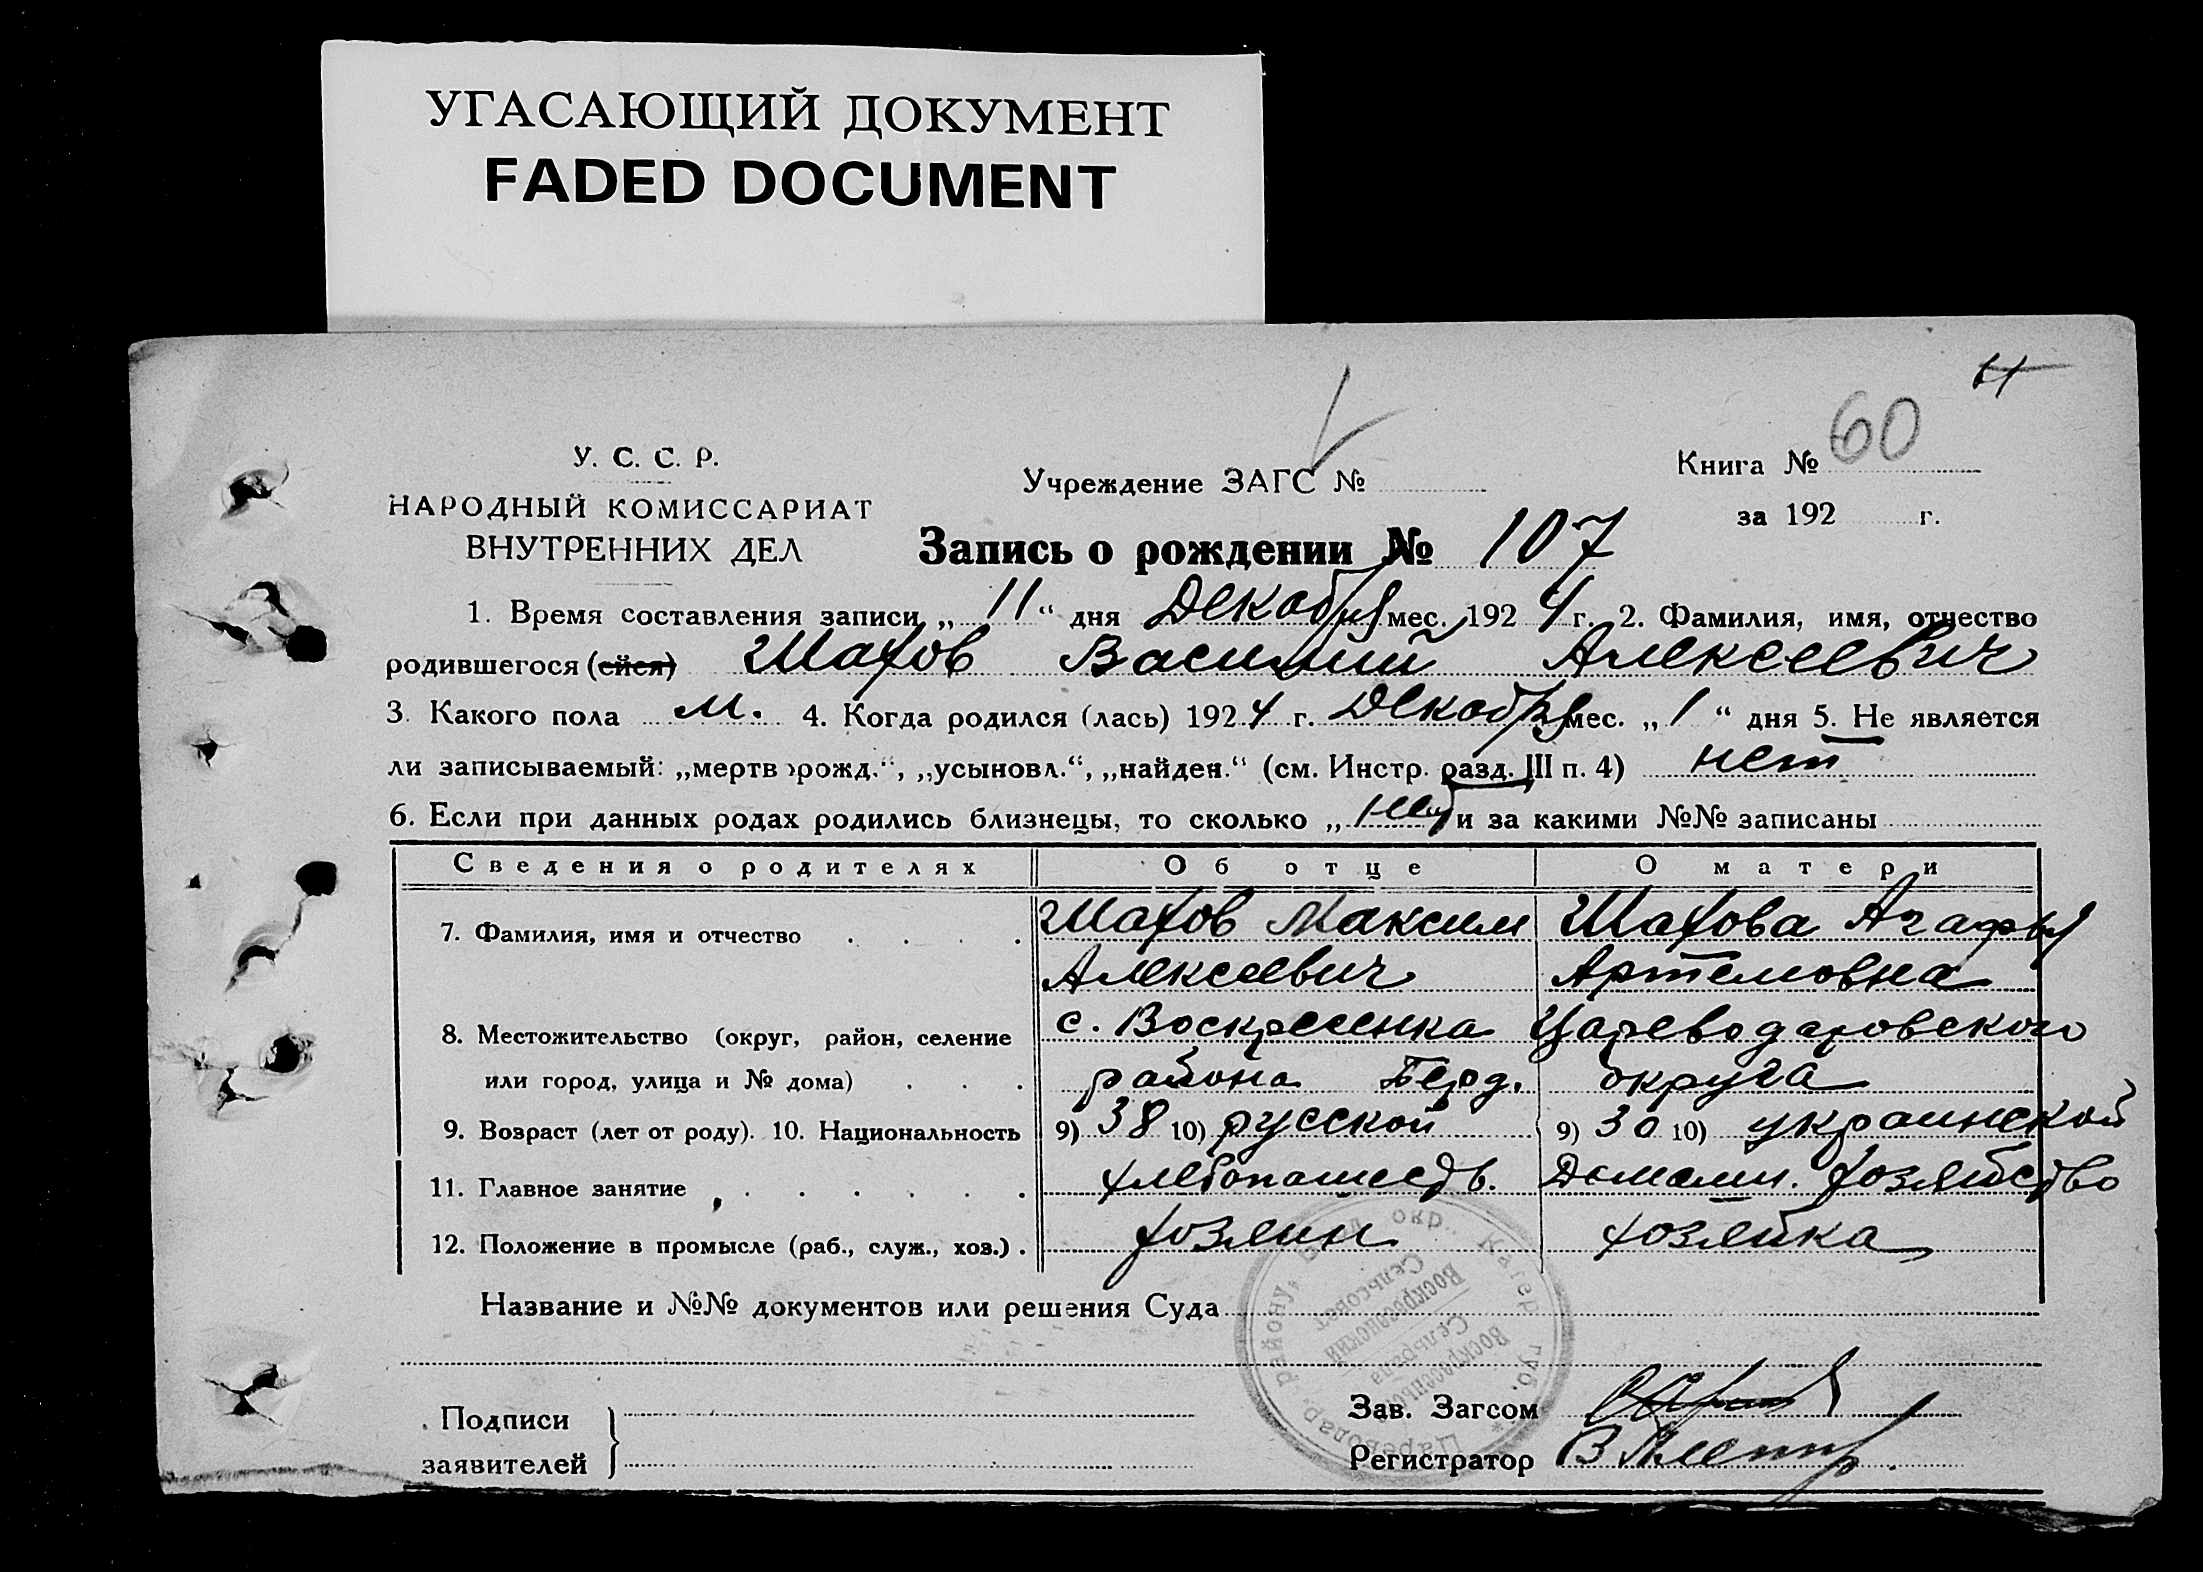 УГАСАЮЩИЙ ДОКУМЕНТ
FADED DOCUMENT
У. С. С. Р.
НАРОДНЫЙ КОМИССАРИАТ
ВНУТРЕННИХ ДЕЛ
Учреждение ЗАГС №
Книга № 60
за 192 г.
Запись о рождении № 107
1. Время составления записи „ 11 “ дня Декабря мес. 192 4 г. 2. Фамилия, имя, отчество
родившегося (ейся) Шахов Василий Алексеевич
3. Какого пола м. 4. Когда родился (лась) 192 4 г. Декабря мес. „ 1 “ дня 5. Не является
ли записываемый: „мертворожд.“, „усыновл.“, „найден.“ (см. Инстр. разд. III п. 4) нет
6. Если при данных родах родились близнецы, то сколько „ нет и за какими №№ записаны
Сведения о родителях Об отце О матери
7. Фамилия, имя и отчество . . . . Шахов Максим Шахова Агафья
Алексеевич Артемовна
8. Местожительство (округ, район, селение с. Воскресенка Цареводаровского
или город, улица и № дома) . . . района Берд. округа
9. Возраст (лет от роду). 10. Национальность 9) 38 10) русской 9) 30 10) украинской
11. Главное занятие . . . . . . хлебопашеств. Домашн. хозяйство
12. Положение в промысле (раб., служ., хоз.) . хозяин хозяйка
Название и №№ документов или решения Суда
Цареводар. району, Берд. окр., Катер. губ.
Воскресенский
Сельсовет
Воскресенська
Сельрада
Подписи
заявителей
Зав. Загсом
Регистратор В